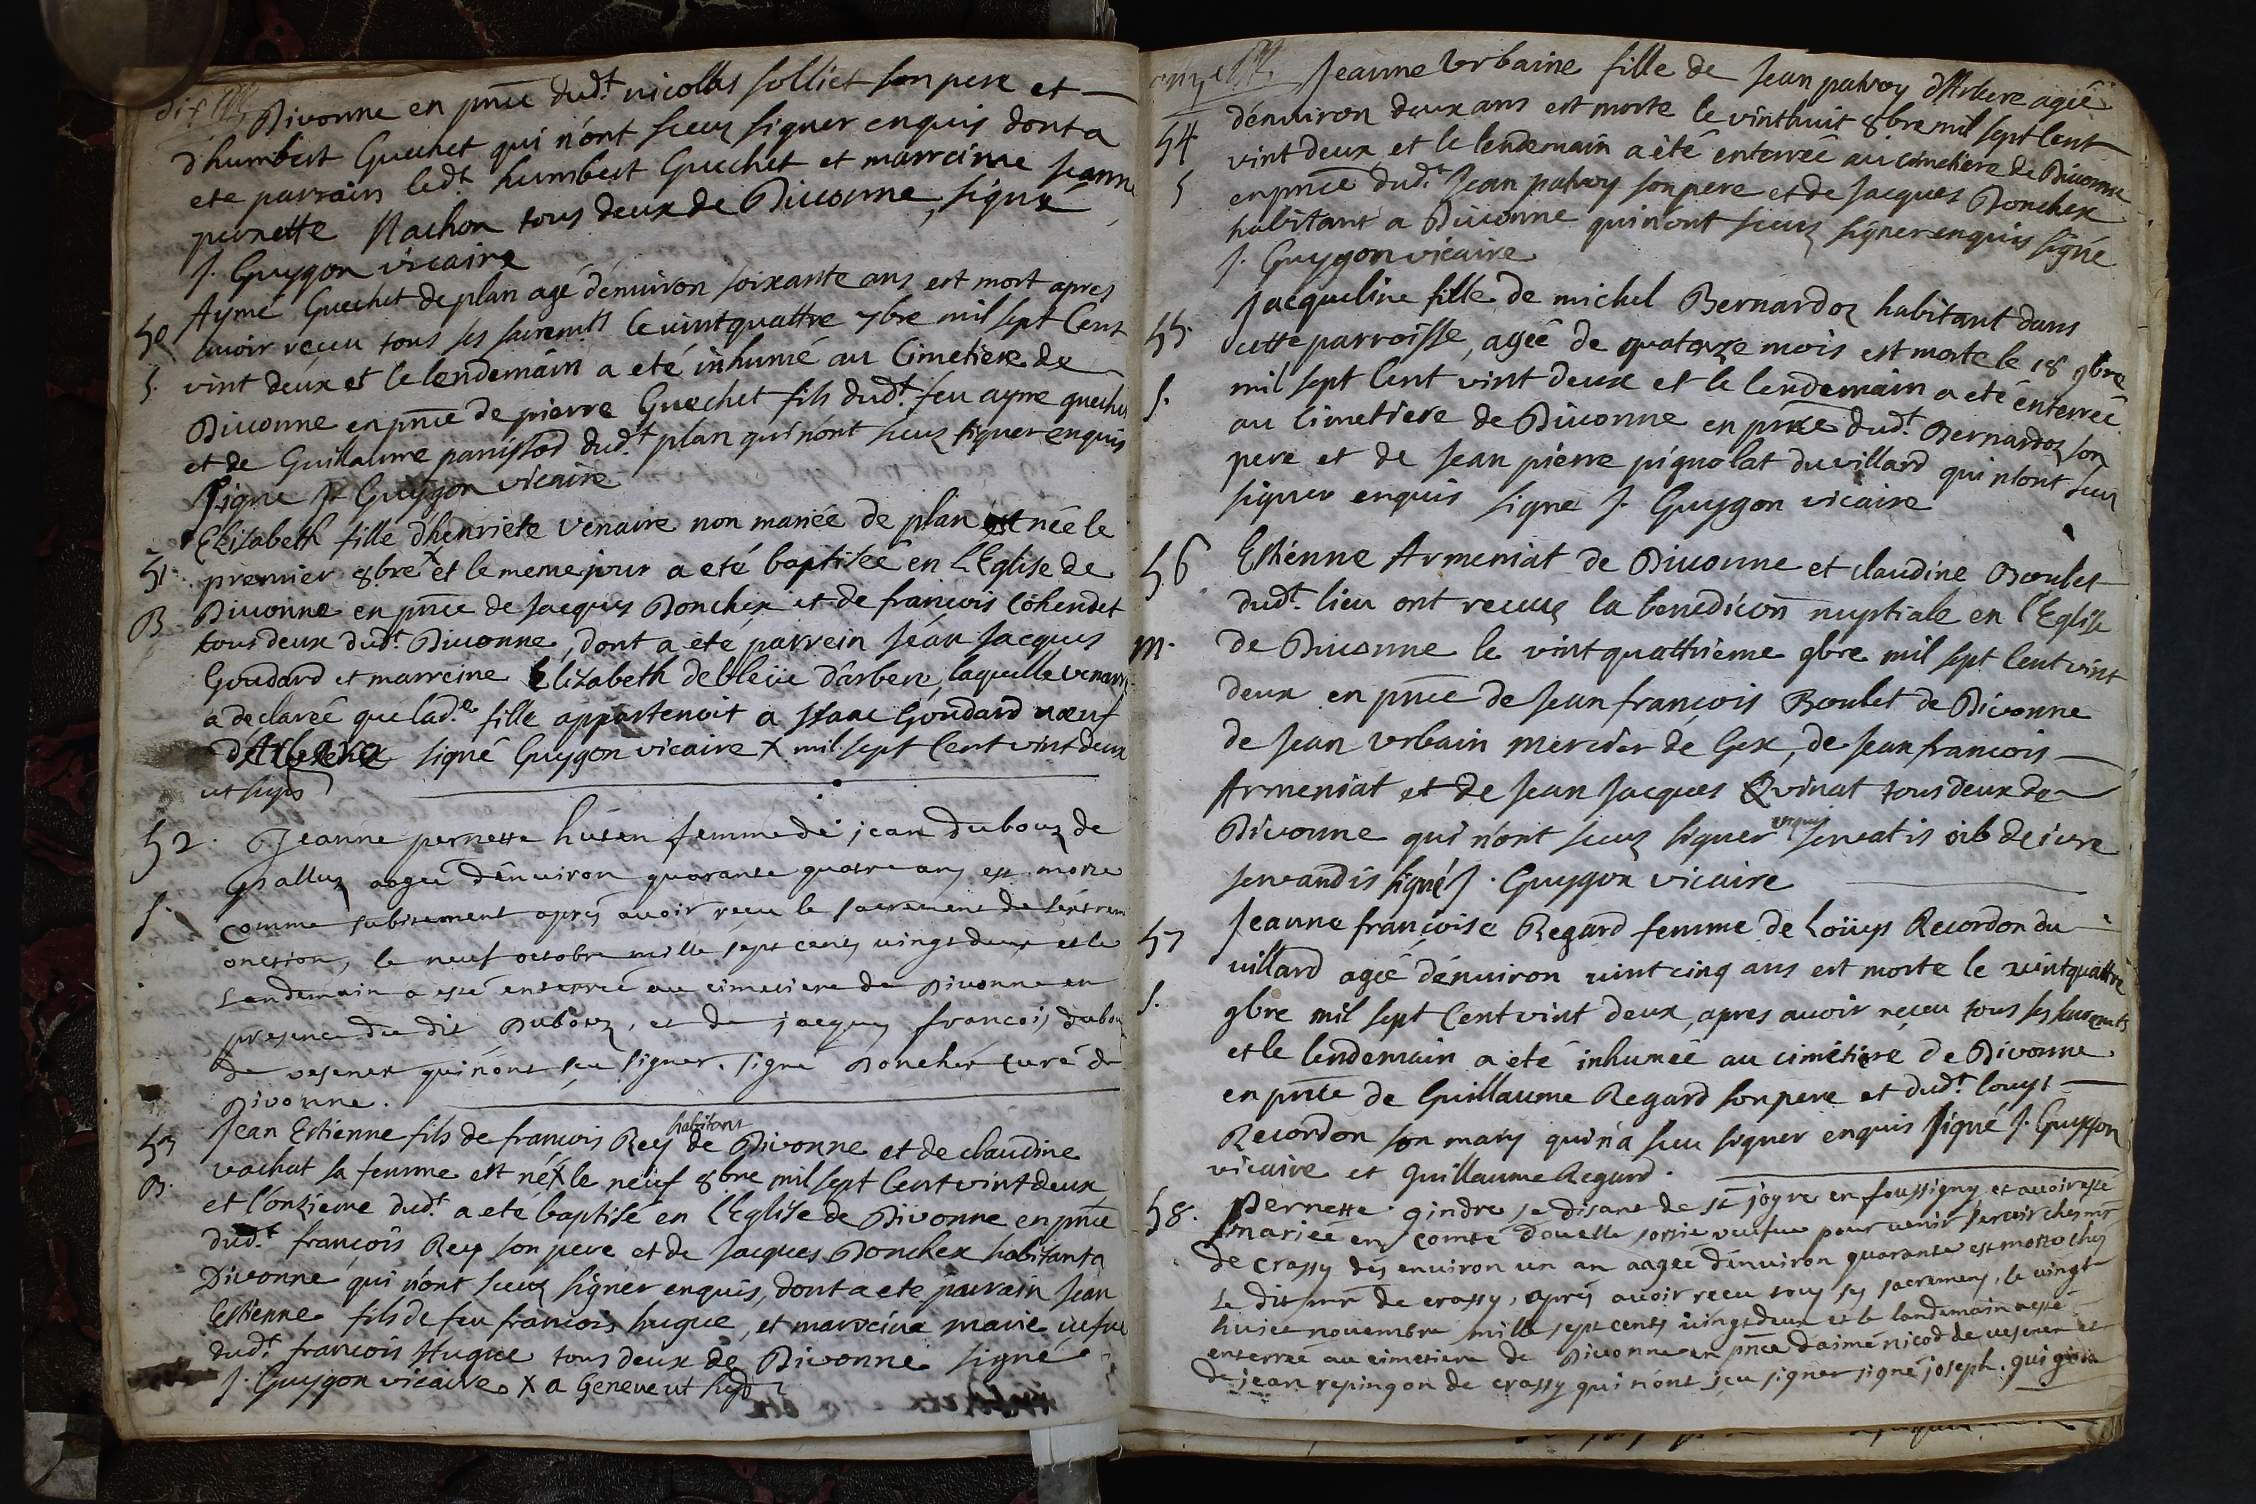 dix
Divonne en pnce dud.t nicolas solliet son pere et
d'humbert Guechet qui n'ont sceus signer enquis dont a
ete parrain led.t humbert Guechet et marreine Jeanne
pernette Nachon tous deux de Divonne, signé
J. Guygon vicaire
50 Aymé Guechet de plan agé d'environ soixante ans est mort apres
avoir reçeu tous ses sacremts le vintquattre 7bre mil sept Cent
S. vint deux et le lendemain a eté inhumé au Cimetiere de
Divonne en pnce de pierre Guechet fils dud.t feu ayme guechet
et de Guillaume panissod dud.t plan qui n'ont sceus signer enquis
signe J. Guygon vicaire
Elisabeth fille d'henriete Venaire non mariée de plan est née le
51. premier 8bre x et le meme jour a eté baptisée en l'Eglise de
B Divonne en pnce de Jacques Donchex et de francois Cohendet
tous deux dud.t Divonne, dont a eté parrein Jean Jacques
Goudard et marreine Elizabeth de d'arbere, laquelle venaire
a declareé que lad.e fille appartenoit a Isaac Goudard nœuf
d'Arbere signé Guygon vicaire x mil sept Cent vint deux
ut supr
52. Jeanne pernette husen femme de jean dubouz de
aageé d'environ quarante quatre ans est morte
S. comme subitement aprés avoir reçeu le sacrement de l'extreme
onction, le neuf octobre mille sept cents vingt deux et le
Lendemain a esté enterreé au cimetiere de Divonne en
presence du dit Dubouz, et de jacques francois dubouz
de vesenex qui n'ont sçeu signer. signé Donchex Curé de
Divonne.
Jean Estienne fils de francois Rey habitant de Divonne et de claudine
53 vachat sa femme est né x le neuf 8bre mil sept Cent vint deux
B. et l'onzieme dud.t a eté baptisé en l'Eglise de Divonne en pnce
dud.t françois Rey son pere et de Jacques Donchex habitant a
Divonne qui n'ont sceus signer enquis, dont a ete parrain Jean
Estienne fils de feu francois hugue, et marreine marie vefve
dud.t francois Hugue tous deux de Divonne signé
J. Guygon vicaire x a Geneve ut supr
onze
Jeanne Urbaine fille de Jean patroy d'Arbere ageé
54 d'environ deux ans est morte le vinthuit 8bre mil sept Cent
vint deux et le lendemain a été enterreé au cimetiere de Divonne
S en pnce dud.t Jean patroy son pere et de Jacques Donchex
habitant a Divonne qui n'ont sceus signer enquis signé
J. Guygon vicaire
Jacqueline fille de michel Bernardoz habitant dans
55. cette parroisse, ageé de quatorze mois est morte le 18 9bre
mil sept Cent vint deux et le lendemain a eté enterreé
S. au Cimetiere de Divonne en pnce dud.t Bernardoz son
pere et de Jean pierre pignolat du villard qui n'ont sceu
signer enquis signe J. Guygon vicaire
56 Estienne Armeniat de Divonne et claudine Boulet
dud.t lieu ont receus la benedicon nuptiale en l'Eglise
m. de Divonne le vint quattrieme 9bre mil sept Cent vint
deux en pnce de Jean françois Boulet de Divonne
de Jean Urbain mercier de Gex, de Jean francois
Armeniat et de Jean Jacques Quinat tous deux de
Divonne qui n'ont sceus signer enquis servatis oib de jure
servandis signé J. Guygon vicaire
57 Jeanne françoise Regard femme de Loüys Recordon du
villard ageé d'environ vint cinq ans est morte le vintquattre
S. 9bre mil sept Cent vint deux, apres avoir reçeu tous ses sacremts
et le lendemain a eté inhumeé au cimetiere de Divonne
en pnce de Guillaume Regard son pere et dud.t louys
Recordon son mary qui n'a sceu signer enquis signé J. Guygon
vicaire et Guillaume Regard.
58. Pernette gindre se disant de St joyre en foussigny et avoir esté
marieé en comté d'ou elle sortie veufve pour venir servir ches mr
de crassy des environ un an aageé d'environ quarante est morte ches
Le dit mr de crassy, aprés avoir receu tous ses sacremens, le vingt
huict novembre mille sept cents vingt deux et le landemain a esté
enterreé au cimetiere de Divonne en pnce d'aimé nicod de vesenex et
de jean repingon de crassy qui n'ont sçeu signer signé joseph guigon